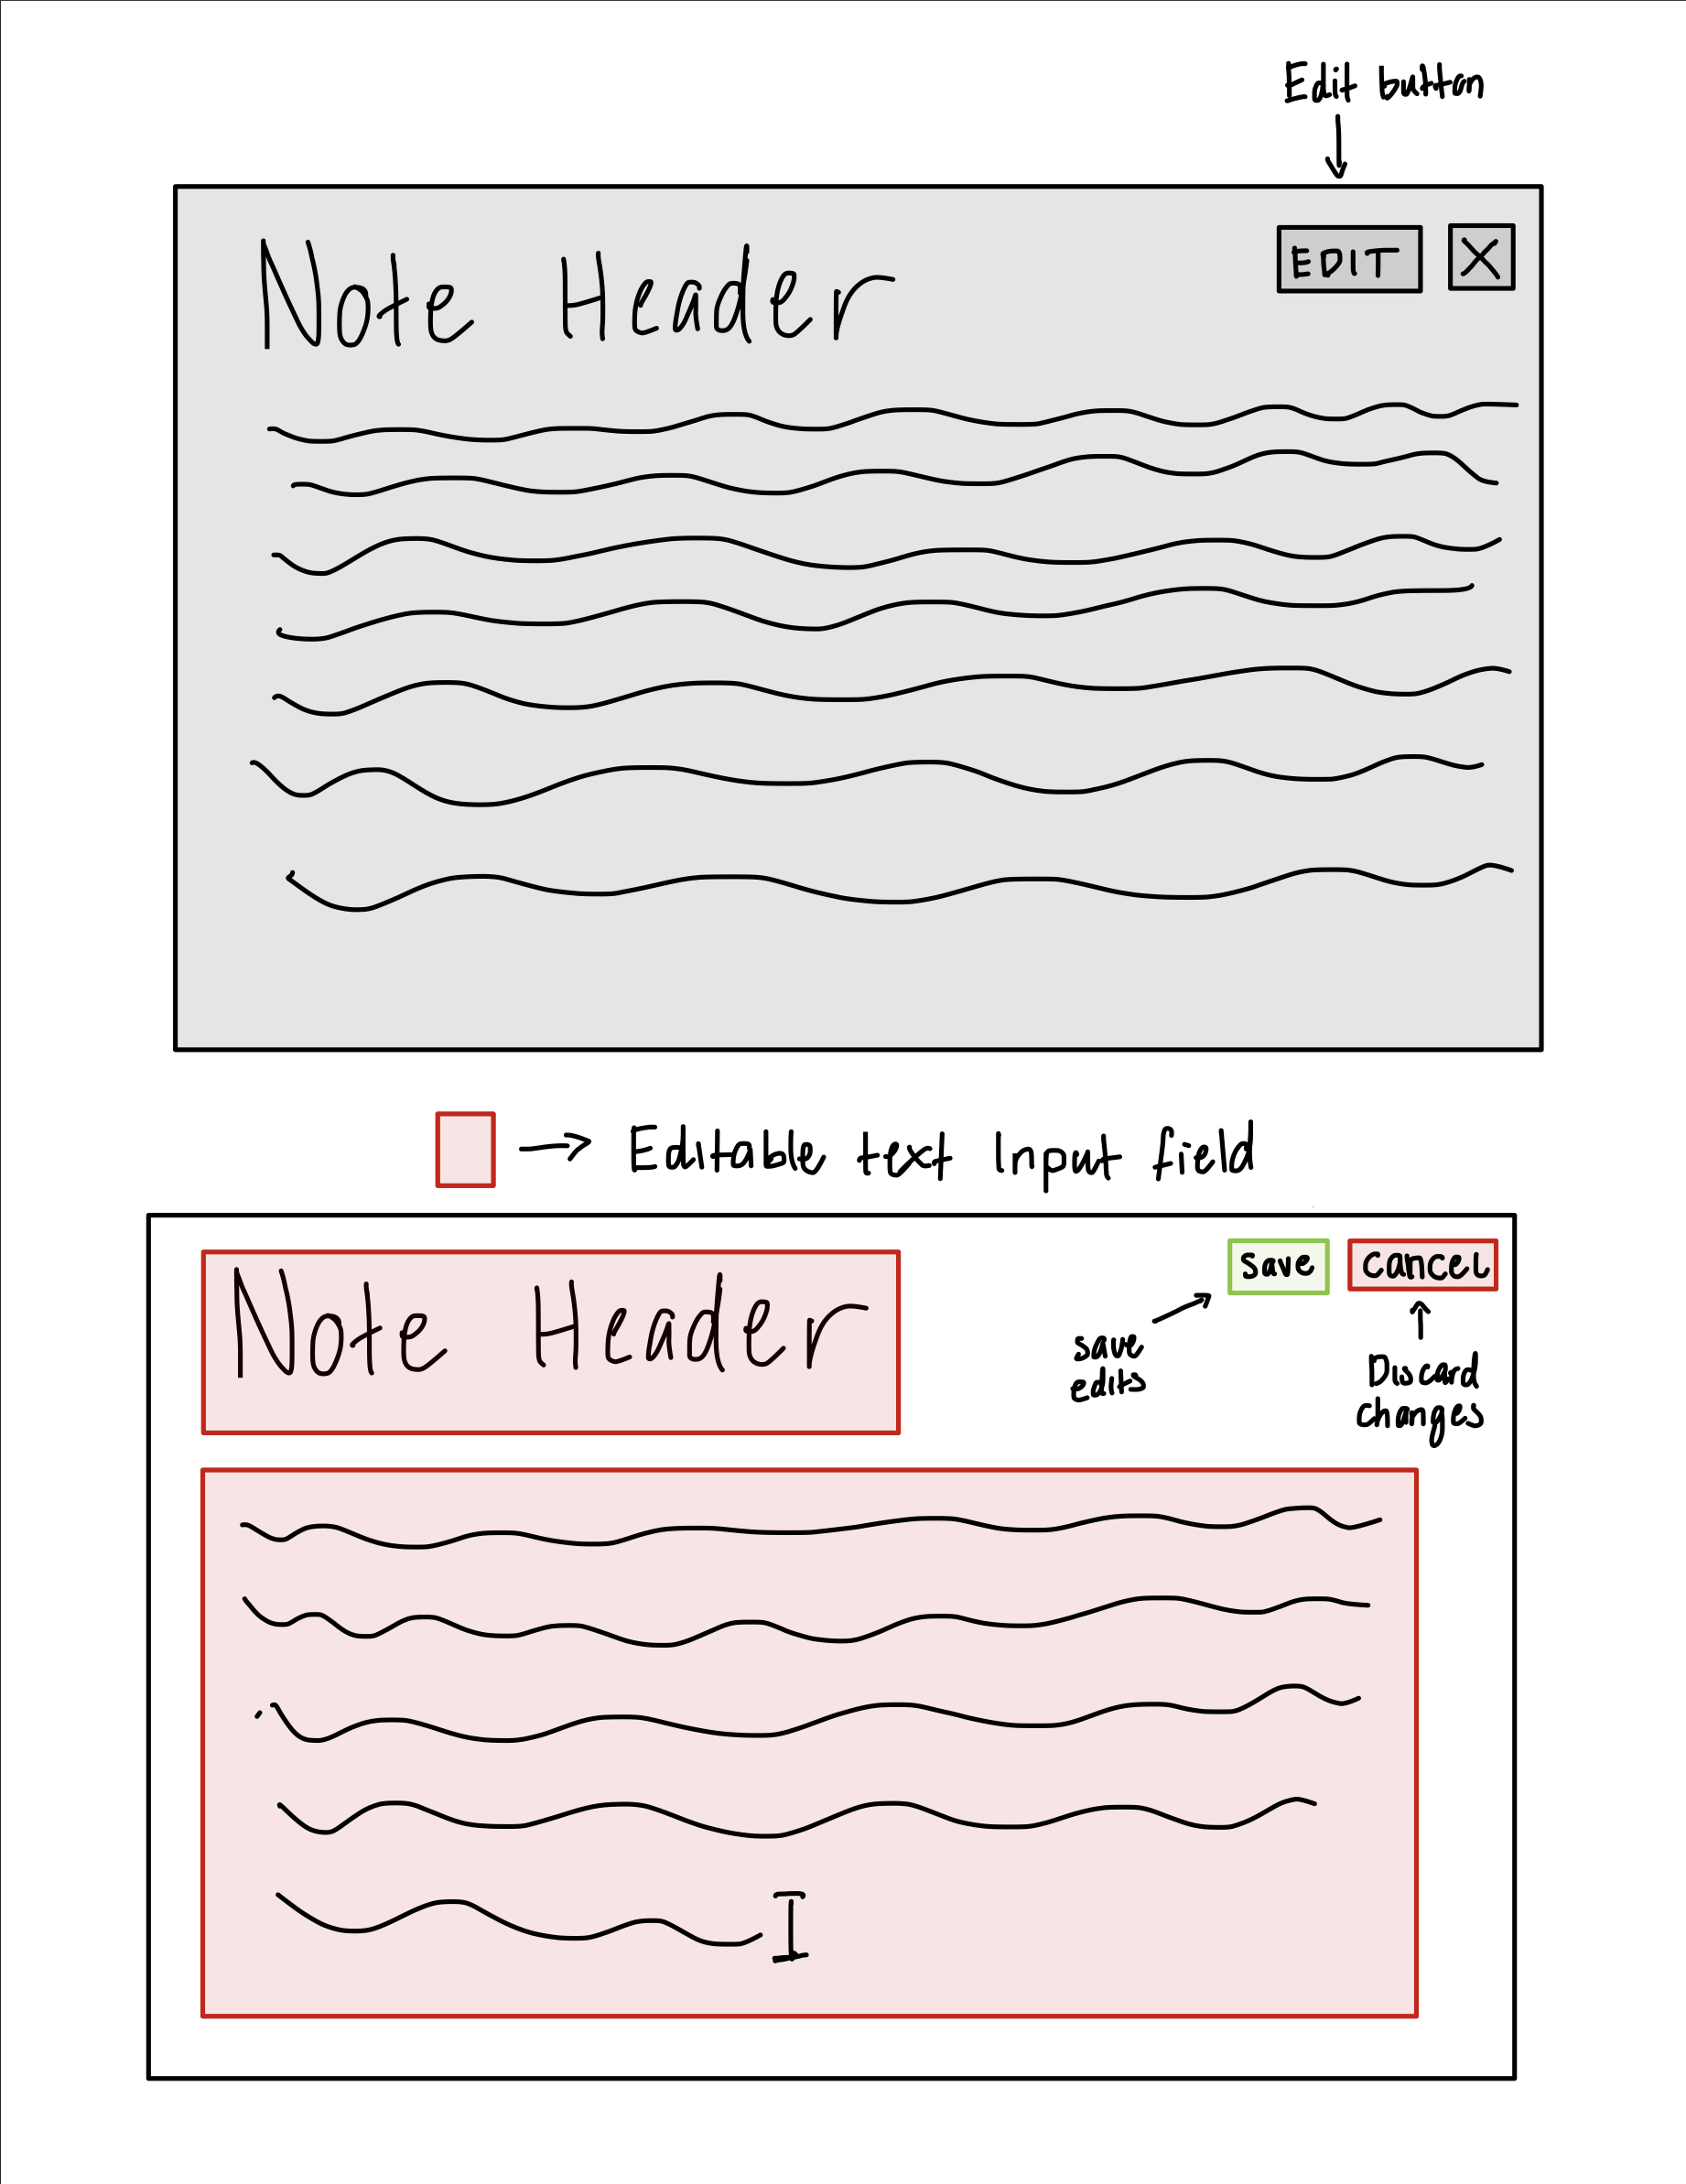 Edit button
Note Header
EDIT
X
Editable text Input field
Note Header
save
cancel
save
edits
Discard
changes